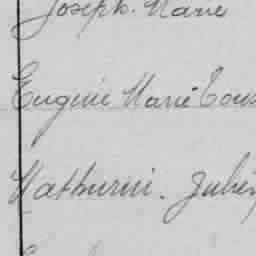 Joseph. Marie
Eugénie Marie Tous
Mathurin. Julien